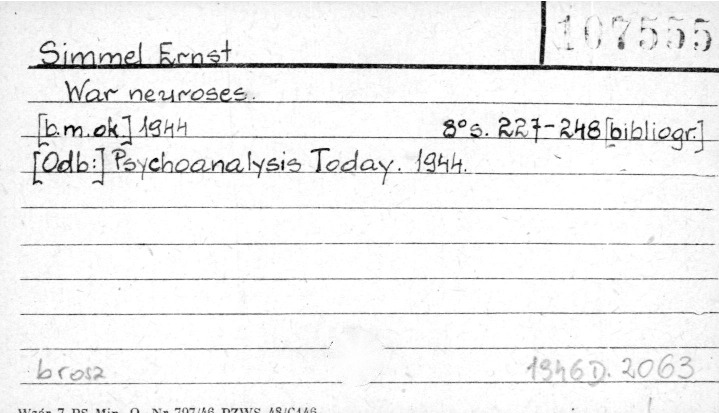 107555
Simmel Ernst
War neuroses.
[b.m.ok] 1944 8° s. 227-248 [bibliogr.]
[Odb:] Psychoanalysis Today. 1944.
brosz 1946 D. 2063
Wzór 7 PS Min. O. Nr 797/46 PZWS